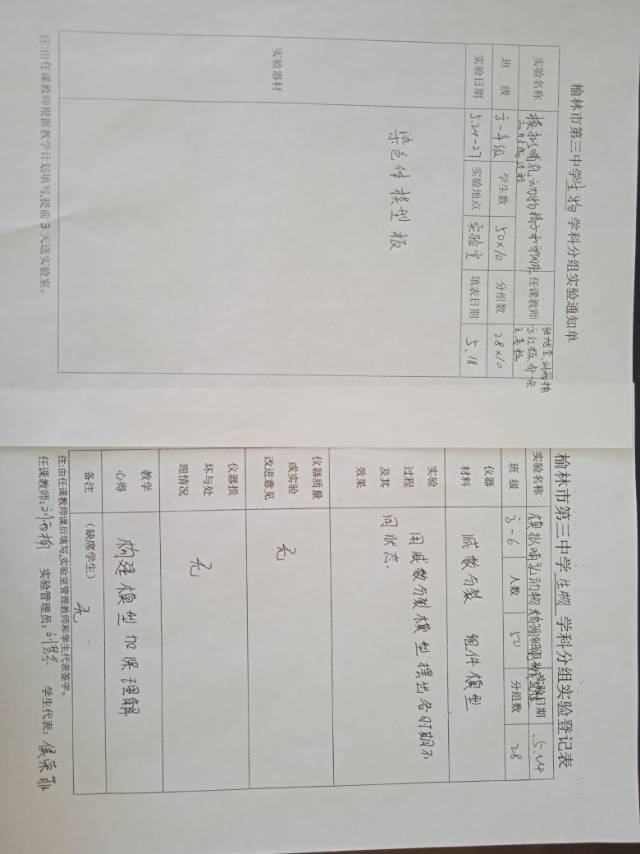 榆林市第三中学生物学科分组实验通知单
实验名称 模拟哺乳动物精子和卵细胞 任课教师
班 级 高一年级 学生数 50×10 分组数 28×10
实验日期 5.24-27 实验地点 实验室 填表日期 5.18
实验器材
染色体模型板
注:由任课教师根据教学计划填写,提前3天送实验室。
榆林市第三中学生物学科分组实验登记表
实验名称 模拟哺乳动物 实验日期 5.24
班 级 高一6 人数 50 分组数 28
仪器材料 减数分裂 组件模型
实验过程及其效果 用减数分裂模型摆出各时期不
同状态.
仪器质量或实验改进意见 无
仪器损坏与处理情况 无
教学心得 构建模型加深理解
备注 (缺席学生) 无
注:由任课教师课后填写,实验室管理教师和学生代表签字。
任课教师:刘雨楠 实验管理员: 学生代表: